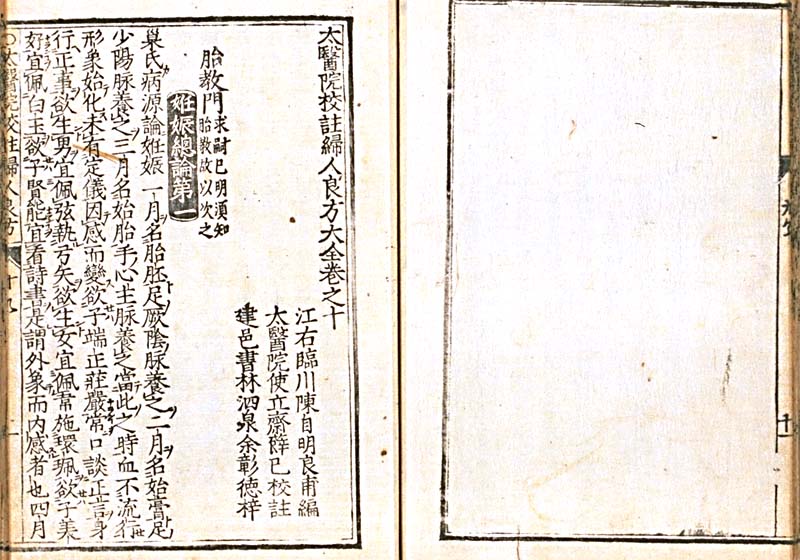 太醫院校註婦人良方大全卷之十
江右臨川陳自明良甫編
太醫院使立齋薛己校註
建邑書林泗泉余彰德梓
胎教門 求嗣已明須知
胎教故以次之
姙娠總論第一
巢氏病源論姙娠一月名胎胚足厥陰脉養之二月名始膏足
少陽脉養之三月名始胎手心主脉養之當此之時血不流行
形象始化未有定儀因感而變欲子端正莊嚴常口談正言身
行正事欲生男宜佩弦執弓矢欲生女宜佩韋施環珮欲子美
好宜佩白玉欲子賢能宜看詩書是謂外象而内感者也四月
太醫院校註婦人良方